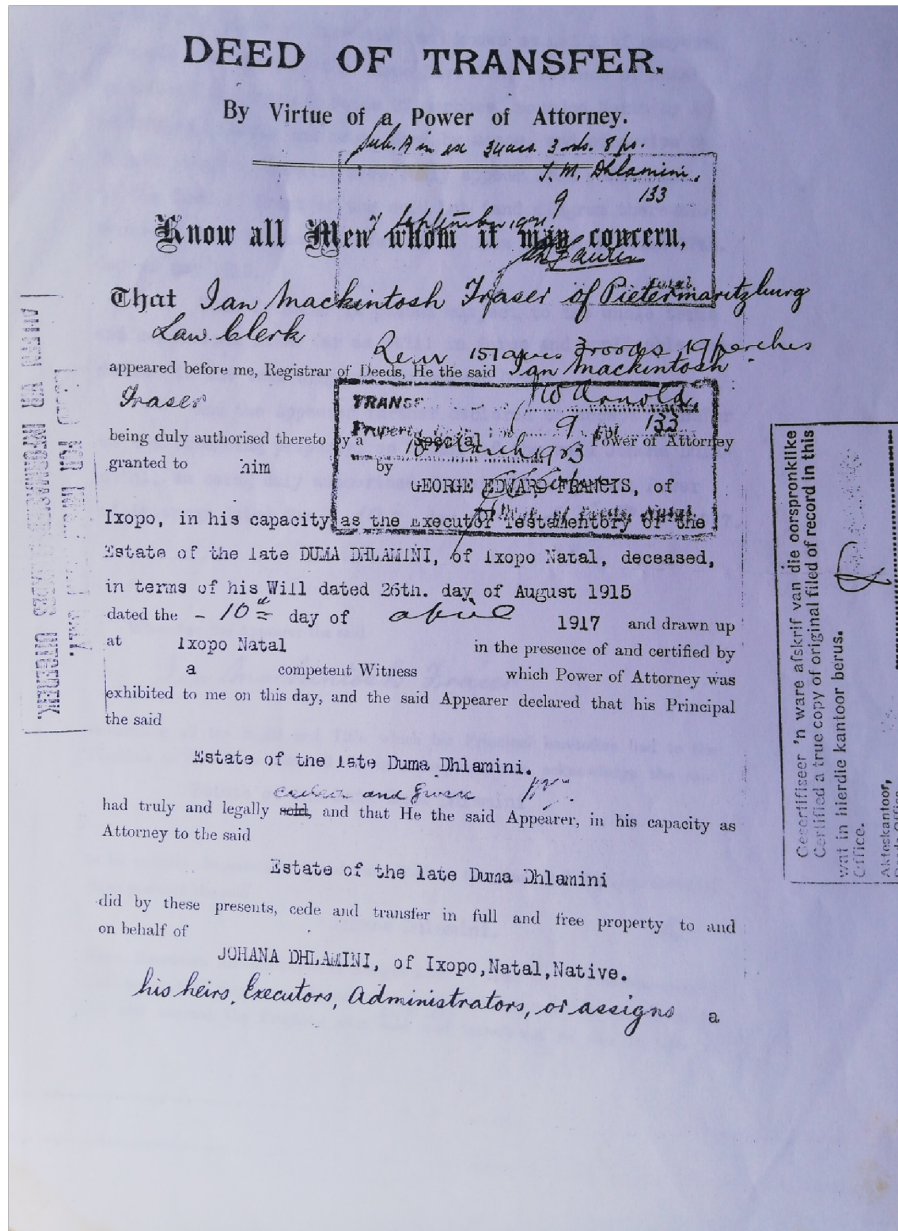 DEED OF TRANSFER.
By Virtue of a Power of Attorney.
Sub. A in ex 34 acs. 3 rds. 8 ps.
J. M. Dhlamini,
9 133
September
Know all Men whom it may concern,
That Ian Mackintosh Fraser of Pietermaritzburg
Law Clerk
Rem 151 acres 3 roods 19 perches
appeared before me, Registrar of Deeds, He the said Ian Mackintosh
Fraser
TRANSF
Arnold,
Property 9 133
being duly authorised thereto by a Special Power of Attorney
March 1923
granted to him by
GEORGE EDWARD FRANCIS, of
Ixopo, in his capacity as the Executor Testamentory of the
Estate of the late DUMA DHLAMINI, of Ixopo Natal, deceased,
in terms of his Will dated 26th. day of August 1915
dated the - 10th day of April 1917 and drawn up
at Ixopo Natal in the presence of and certified by
a competent Witness which Power of Attorney was
exhibited to me on this day, and the said Appearer declared that his Principal
the said
Estate of the late Duma Dhlamini.
ceded and given
had truly and legally sold, and that He the said Appearer, in his capacity as
Attorney to the said
Estate of the late Duma Dhlamini
did by these presents, cede and transfer in full and free property to and
on behalf of
JOHANA DHLAMINI, of Ixopo,Natal,Native.
his heirs, Executors, Administrators, or assigns a
ALLEEN VIR INFORMASIE DOELEINDES UITGEREIK.
ISSUED FOR INFORMATION ONLY.
Gesertifiseer 'n ware afskrif van die oorspronklike
Certified a true copy of original filed of record in this
wat in hierdie kantoor berus.
Office.
Akteskantoor,